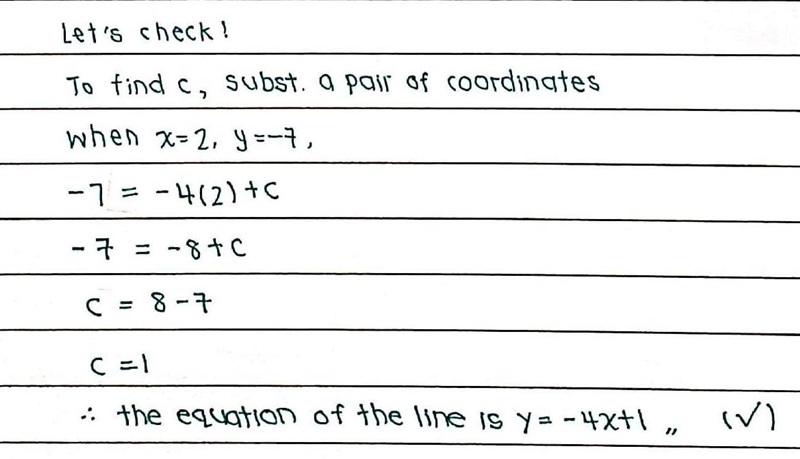 Let's check!
To find c, subst. a pair of coordinates
when x=2, y=-7,
-7 = -4(2)+c
-7 = -8+c
c = 8-7
c =1
∴ the equation of the line is y = -4x+1 〃 (√)